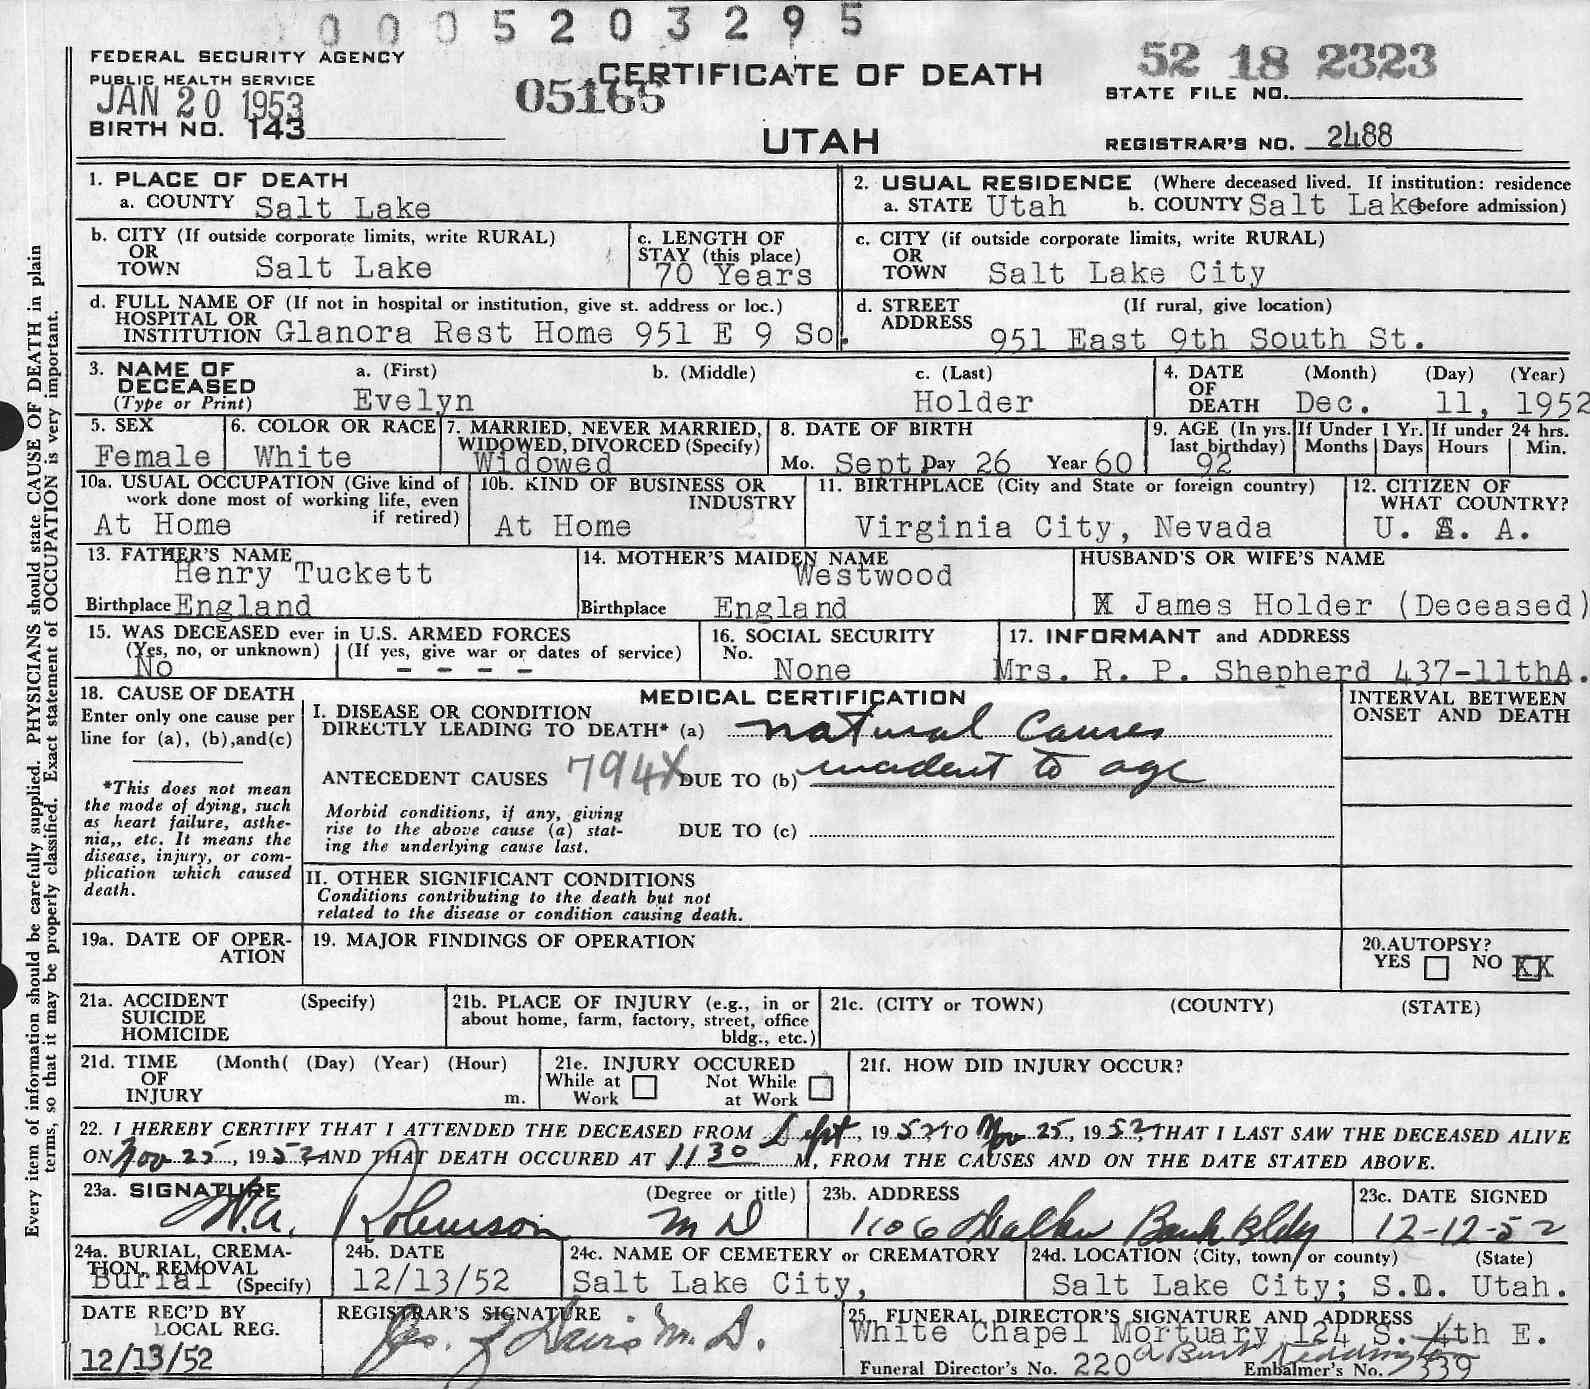 0005203295
FEDERAL SECURITY AGENCY
PUBLIC HEALTH SERVICE
JAN 20 1953
BIRTH NO. 143
05165
CERTIFICATE OF DEATH
UTAH
52 18 2323
STATE FILE NO.
REGISTRAR'S NO. 2488
1. PLACE OF DEATH
a. COUNTY Salt Lake
2. USUAL RESIDENCE (Where deceased lived. If institution: residence
a. STATE Utah b. COUNTY Salt Lake before admission)
b. CITY (If outside corporate limits, write RURAL)
OR
TOWN Salt Lake
c. LENGTH OF
STAY (this place)
70 Years
c. CITY (if outside corporate limits, write RURAL)
OR
TOWN Salt Lake City
d. FULL NAME OF (If not in hospital or institution, give st. address or loc.)
HOSPITAL OR
INSTITUTION Glanora Rest Home 951 E 9 So.
d. STREET (If rural, give location)
ADDRESS 951 East 9th South St.
3. NAME OF a. (First) b. (Middle) c. (Last)
DECEASED
(Type or Print) Evelyn Holder
4. DATE (Month) (Day) (Year)
OF
DEATH Dec. 11, 1952
5. SEX
Female
6. COLOR OR RACE
White
7. MARRIED, NEVER MARRIED,
WIDOWED, DIVORCED (Specify)
Widowed
8. DATE OF BIRTH
Mo. Sept Day 26 Year 60
9. AGE (In yrs.
last birthday)
92
If Under 1 Yr.
Months Days
If under 24 hrs.
Hours Min.
10a. USUAL OCCUPATION (Give kind of
work done most of working life, even
if retired)
At Home
10b. KIND OF BUSINESS OR
INDUSTRY
At Home
11. BIRTHPLACE (City and State or foreign country)
Virginia City, Nevada
12. CITIZEN OF
WHAT COUNTRY?
U. S. A.
13. FATHER'S NAME
Henry Tuckett
Birthplace England
14. MOTHER'S MAIDEN NAME
Westwood
Birthplace England
HUSBAND'S OR WIFE'S NAME
James Holder (Deceased)
15. WAS DECEASED ever in U.S. ARMED FORCES
(Yes, no, or unknown) (If yes, give war or dates of service)
No - - - -
16. SOCIAL SECURITY
No.
None
17. INFORMANT and ADDRESS
Mrs. R. P. Shepherd 437-11thA.
18. CAUSE OF DEATH
Enter only one cause per
line for (a), (b),and(c)
*This does not mean
the mode of dying, such
as heart failure, asthe-
nia,, etc. It means the
disease, injury, or com-
plication which caused
death.
MEDICAL CERTIFICATION
I. DISEASE OR CONDITION
DIRECTLY LEADING TO DEATH* (a) natural causes
ANTECEDENT CAUSES 794X DUE TO (b) incident to age
Morbid conditions, if any, giving
rise to the above cause (a) stat-
ing the underlying cause last.
DUE TO (c)
INTERVAL BETWEEN
ONSET AND DEATH
II. OTHER SIGNIFICANT CONDITIONS
Conditions contributing to the death but not
related to the disease or condition causing death.
19a. DATE OF OPER-
ATION
19. MAJOR FINDINGS OF OPERATION
20.AUTOPSY?
YES NO XX
21a. ACCIDENT (Specify)
SUICIDE
HOMICIDE
21b. PLACE OF INJURY (e.g., in or
about home, farm, factory, street, office
bldg., etc.)
21c. (CITY or TOWN) (COUNTY) (STATE)
21d. TIME (Month( (Day) (Year) (Hour)
OF
INJURY m.
21e. INJURY OCCURED
While at Not While
Work at Work
21f. HOW DID INJURY OCCUR?
22. I HEREBY CERTIFY THAT I ATTENDED THE DECEASED FROM Sept, 1952 TO Nov 25, 1952, THAT I LAST SAW THE DECEASED ALIVE
ON Nov 25, 1952 AND THAT DEATH OCCURED AT 1130 M, FROM THE CAUSES AND ON THE DATE STATED ABOVE.
23a. SIGNATURE (Degree or title)
Robinson M D
23b. ADDRESS
1106 Walker Bank Bldg
23c. DATE SIGNED
12-12-52
24a. BURIAL, CREMA-
TION, REMOVAL
Burial (Specify)
24b. DATE
12/13/52
24c. NAME OF CEMETERY or CREMATORY
Salt Lake City,
24d. LOCATION (City, town, or county) (State)
Salt Lake City; S.L. Utah.
DATE REC'D BY
LOCAL REG.
12/13/52
REGISTRAR'S SIGNATURE
Davis M. D.
25. FUNERAL DIRECTOR'S SIGNATURE AND ADDRESS
White Chapel Mortuary 124 S. 4th E.
Funeral Director's No. 220 Embalmer's No. 339
Every item of information should be carefully supplied. PHYSICIANS should state CAUSE OF DEATH in plain
terms, so that it may be properly classified. Exact statement of OCCUPATION is very important.